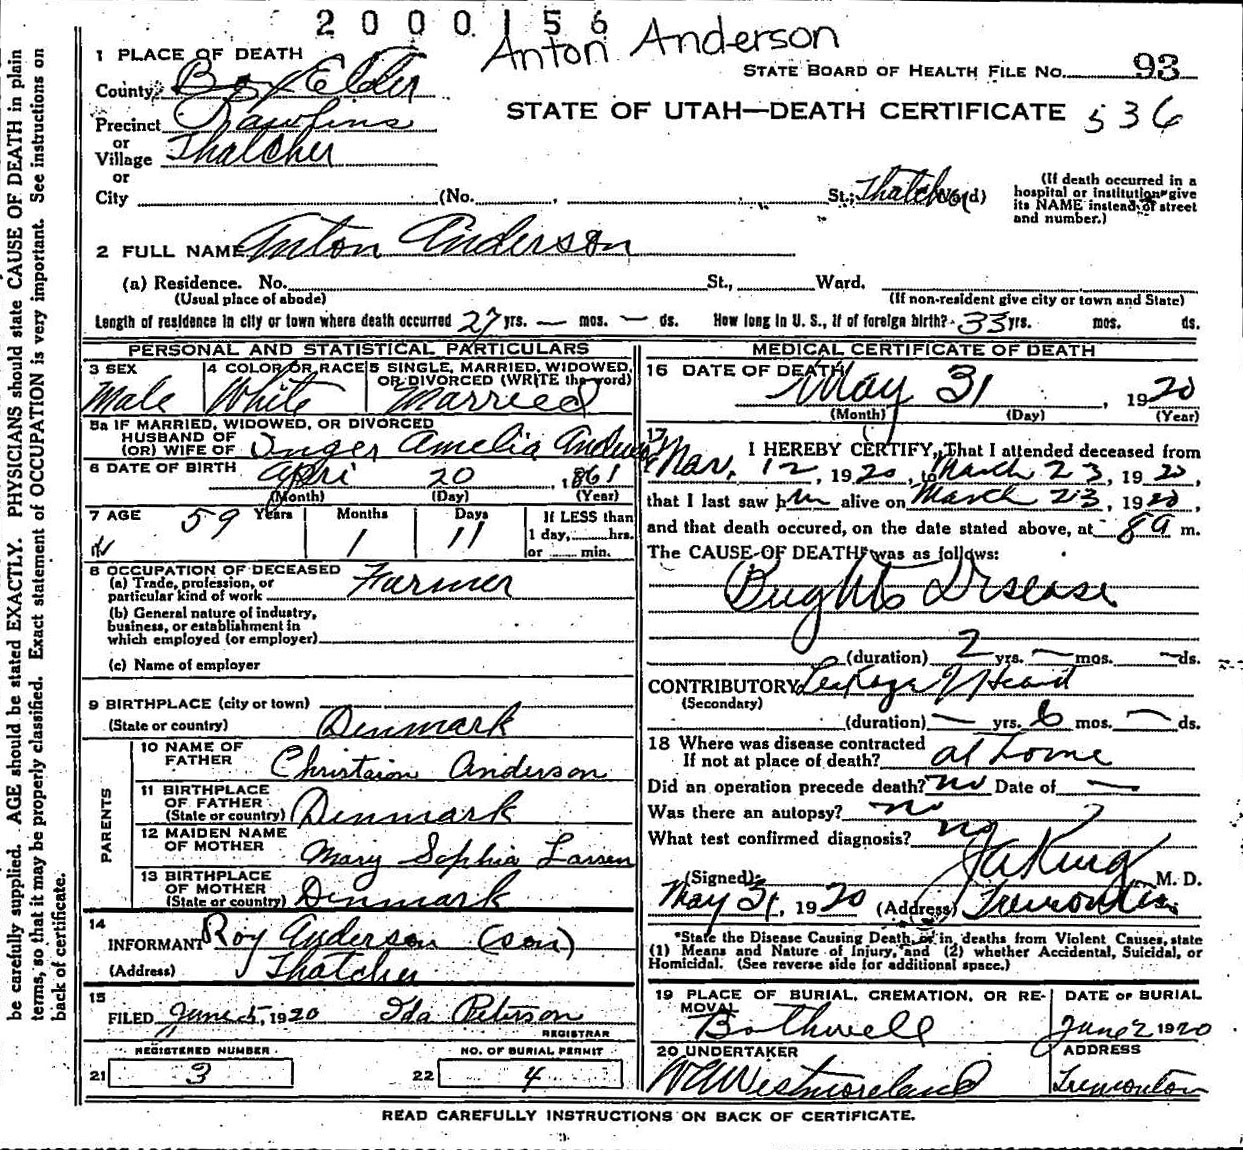 2000156
Anton Anderson
1 PLACE OF DEATH
STATE BOARD OF HEALTH FILE No. 93
County Box Elder
STATE OF UTAH—DEATH CERTIFICATE 536
Precinct
or
Village Thatcher
or
City (No. , St.; Thatcher Ward)
(If death occurred in a hospital or institution give its NAME instead of street and number.)
2 FULL NAME Anton Anderson
(a) Residence. No. St., Ward.
(Usual place of abode) (If non-resident give city or town and State)
Length of residence in city or town where death occurred 27 yrs. — mos. — ds. How long in U. S., if of foreign birth? 33 yrs. mos. ds.
PERSONAL AND STATISTICAL PARTICULARS
3 SEX 4 COLOR OR RACE 5 SINGLE, MARRIED, WIDOWED,
OR DIVORCED (WRITE the word)
Male White Married
5a IF MARRIED, WIDOWED, OR DIVORCED
HUSBAND OF
(OR) WIFE OF Inger Amelia
6 DATE OF BIRTH Apri 20, 1861
(Month) (Day) (Year)
7 AGE 59 Years Months 1 Days 11 If LESS than
1 day, hrs.
or min.
8 OCCUPATION OF DECEASED
(a) Trade, profession, or
particular kind of work Farmer
(b) General nature of industry,
business, or establishment in
which employed (or employer)
(c) Name of employer
9 BIRTHPLACE (city or town)
(State or country) Denmark
PARENTS
10 NAME OF
FATHER Christaion Anderson
11 BIRTHPLACE
OF FATHER
(State or country) Denmark
12 MAIDEN NAME
OF MOTHER Mary Sophia Larsen
13 BIRTHPLACE
OF MOTHER
(State or country) Denmark
14
INFORMANT Roy Anderson (son)
(Address) Thatcher
15
FILED June 5, 1920 Ida Peterson
REGISTRAR
REGISTERED NUMBER NO. OF BURIAL PERMIT
21 3 22 4
MEDICAL CERTIFICATE OF DEATH
16 DATE OF DEATH
May 31, 1920
(Month) (Day) (Year)
17 I HEREBY CERTIFY, That I attended deceased from
Mar. 12, 1920, to March 23, 1920,
that I last saw him alive on March 23, 1920,
and that death occured, on the date stated above, at 8a m.
The CAUSE OF DEATH* was as follows:
Brights Disease
(duration) 2 yrs. — mos. — ds.
CONTRIBUTORY Leakage of Heart
(Secondary)
(duration) — yrs. 6 mos. — ds.
18 Where was disease contracted
If not at place of death? at home
Did an operation precede death? no Date of —
Was there an autopsy? no
What test confirmed diagnosis? no
(Signed) JA King M. D.
May 31, 1920 (Address) Tremonton
*State the Disease Causing Death, or in deaths from Violent Causes, state
(1) Means and Nature of Injury, and (2) whether Accidental, Suicidal, or
Homicidal. (See reverse side for additional space.)
19 PLACE OF BURIAL, CREMATION, OR RE-
MOVAL DATE OF BURIAL
Bothwell June 2 1920
20 UNDERTAKER ADDRESS
Westmoreland Tremonton
READ CAREFULLY INSTRUCTIONS ON BACK OF CERTIFICATE.
be carefully supplied. AGE should be stated EXACTLY. PHYSICIANS should state CAUSE OF DEATH in plain
terms, so that it may be properly classified. Exact statement of OCCUPATION is very important. See instructions on
back of certificate.